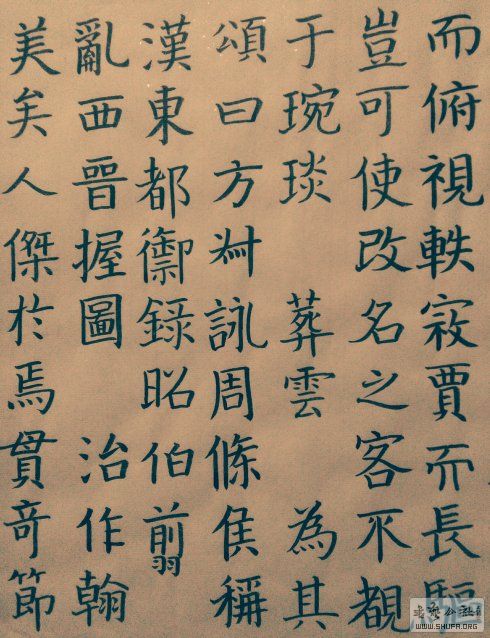 而俯視軼寇賈而長驅
豈可使改名之客不覩
于琬琰 葬雲 為其
頌曰方叔詠周條侯稱
漢東都御錄昭伯翦
亂西晉握圖 治作翰
美矣人傑於焉貫竒節
WWW.SHUFA.ORG